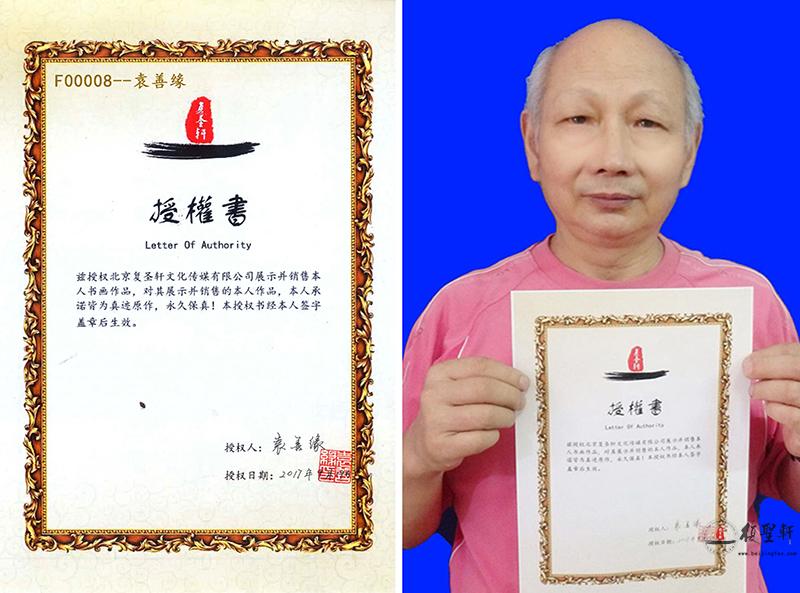 F00008--袁善缘
复圣轩
授權書
Letter Of Authority
兹授权北京复圣轩文化传媒有限公司展示并销售本
人书画作品，对其展示并销售的本人作品，本人承
诺皆为真迹原作，永久保真！本授权书经本人签字
盖章后生效。
授权人：袁善缘
授权日期：2017年
复圣轩
授權書
Letter Of Authority
兹授权北京复圣轩文化传媒有限公司展示并销售本
人书画作品，对其展示并销售的本人作品，本人承
诺皆为真迹原作，永久保真！本授权书经本人签字
盖章后生效。
授权人：袁善缘
授权日期：
復聖軒
www.beijingfsx.com